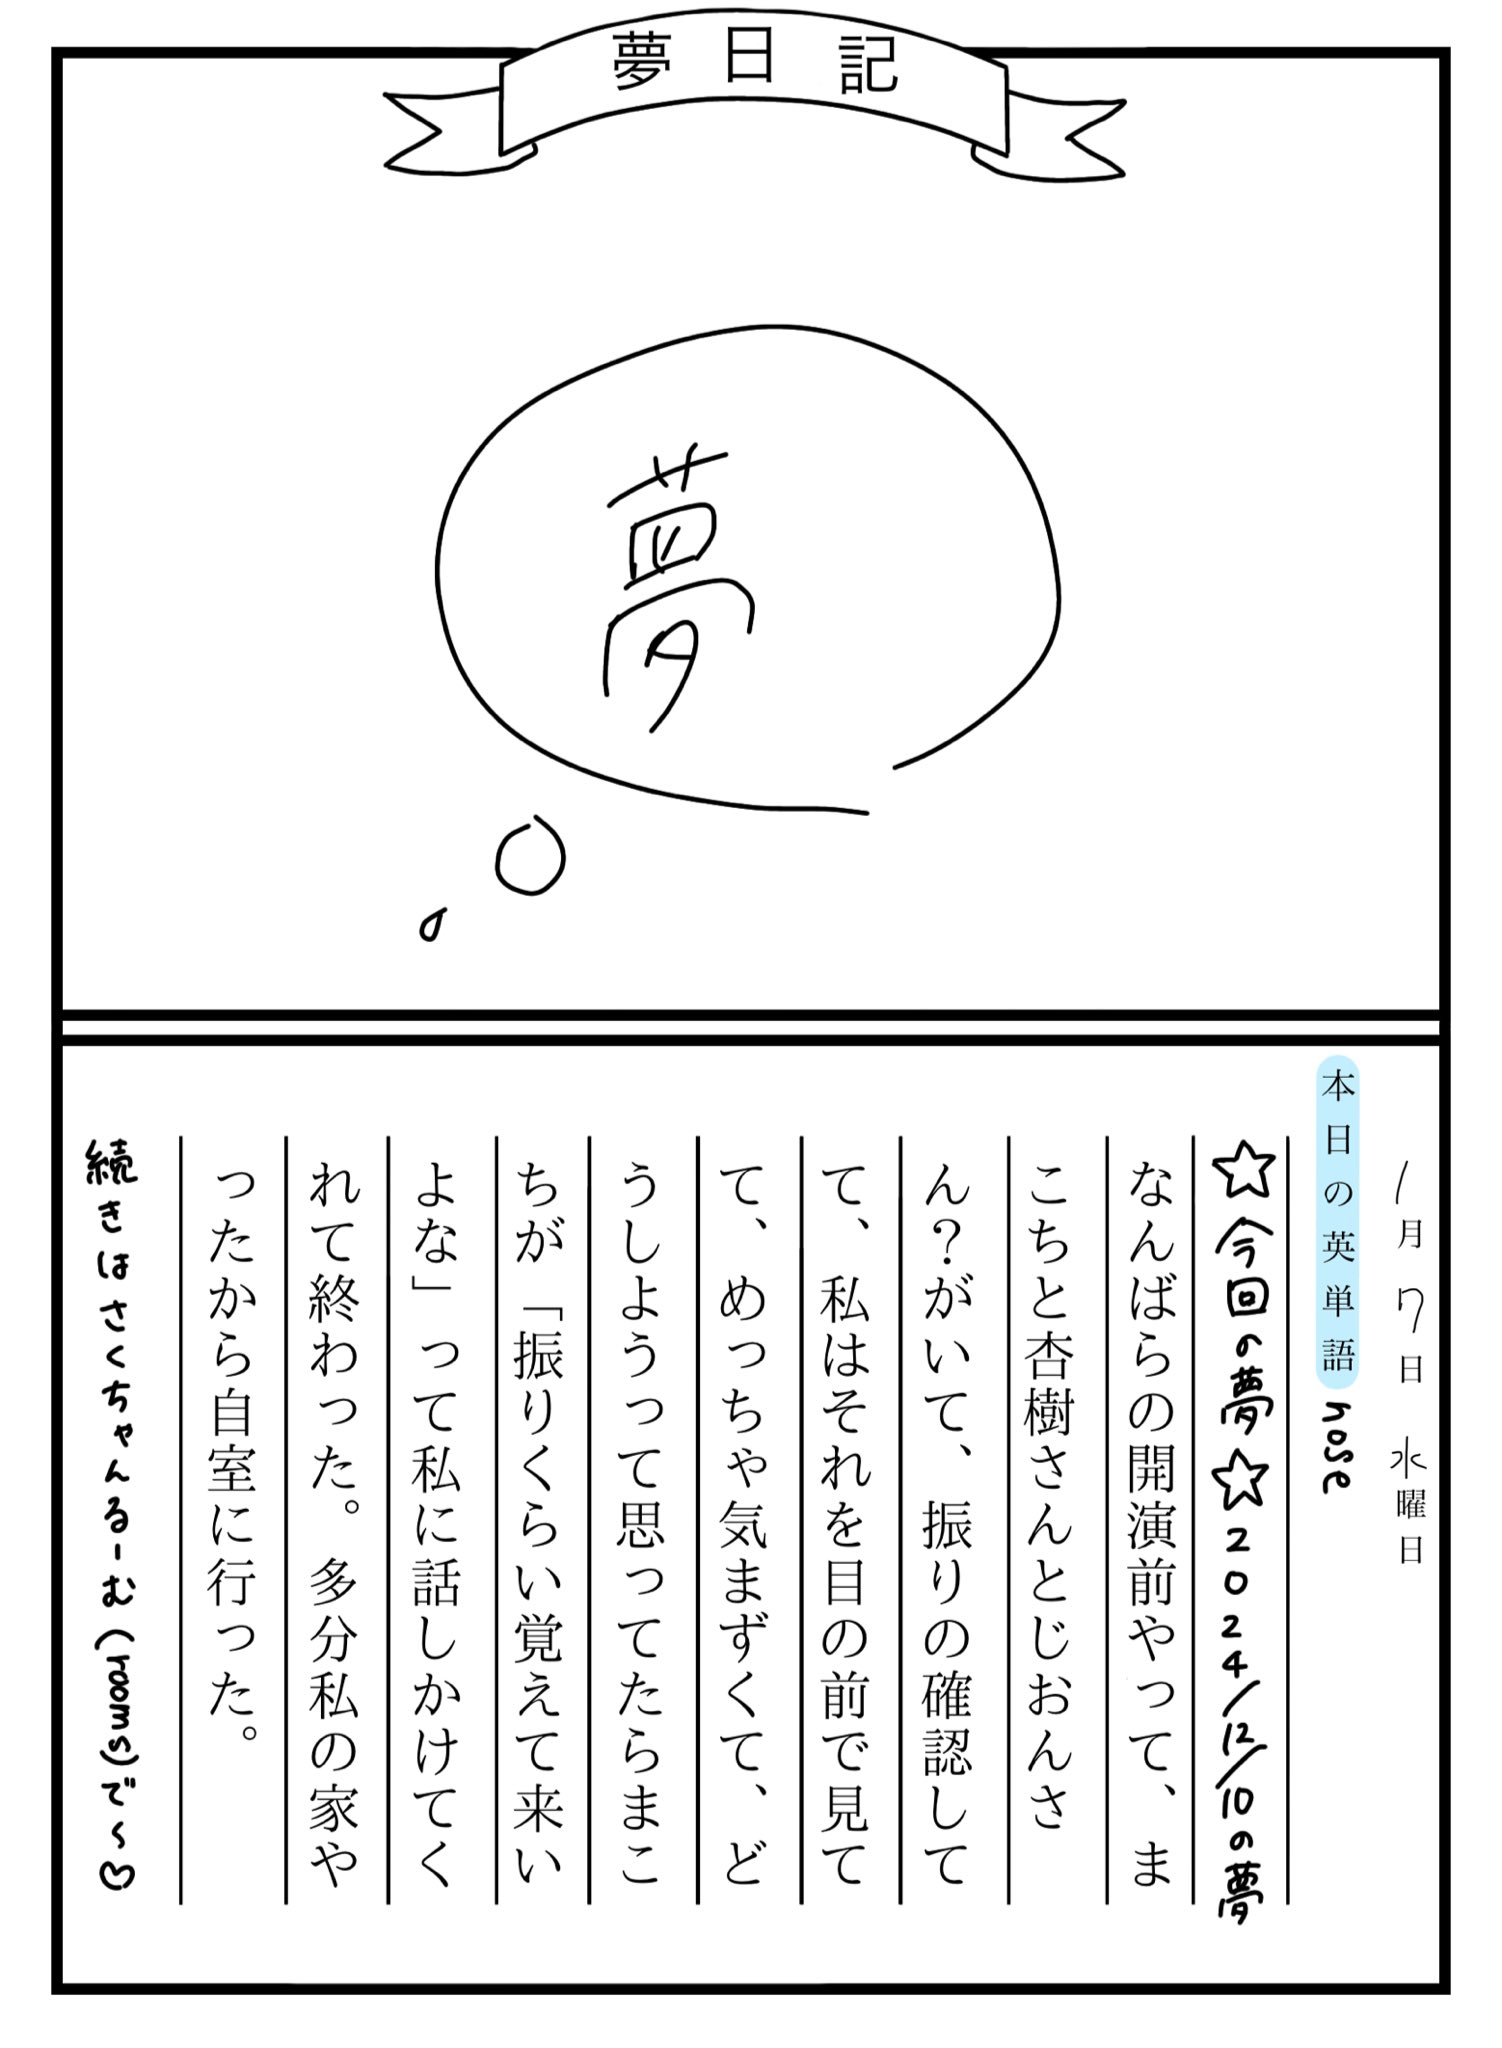 夢日記
夢
1月7日 水曜日
本日の英単語 nose
☆今回の夢☆2024/12/10の夢
なんばらの開演前やって、ま
こちと杏樹さんとじおんさ
ん？がいて、振りの確認して
て、私はそれを目の前で見て
て、めっちゃ気まずくて、ど
うしようって思ってたらまこ
ちが「振りくらい覚えて来い
よな」って私に話しかけてく
れて終わった。多分私の家や
ったから自室に行った。
続きはさくちゃんるーむ(rooms)で〜♡